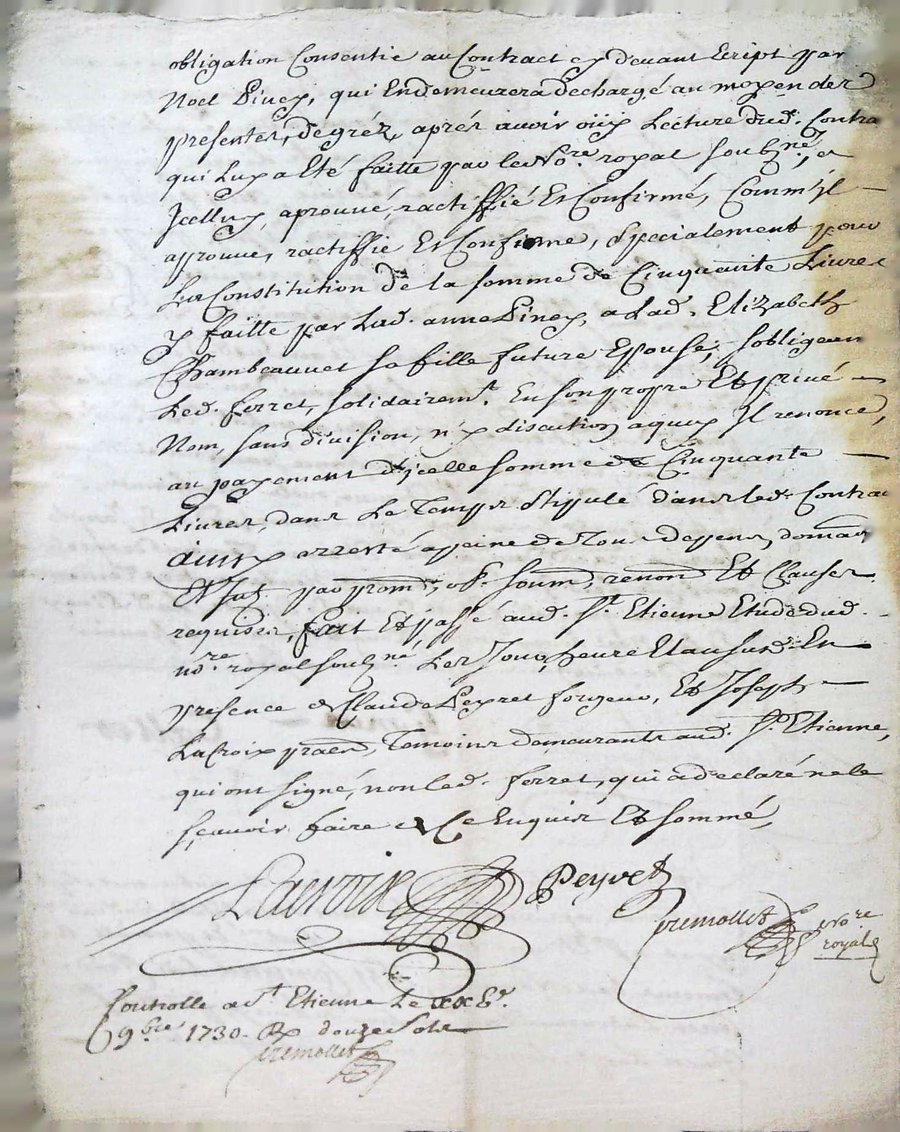 obligation Consentie au Contract cy devant Ecript par
Noel Piney, qui En demeurera dechargé au moyen des
presentes, de gréz, aprés avoir oüy Lecture dud. Contra
qui Luy a Eté faitte par le No.re royal soubz.né, et
Jcelluy, aprouvé, ractiffié Et Confirmé, Comm'jl
aprouve, ractiffie Et Confirme, Specialement pour
La Constitution de la somme de Cinquante Livres
y faitte par Lad. anne Piney, a Lad. Elizabeth
Chambeauvet sa fille future Epouse, sobligean
Led. ferret, solidairem.t En son propre Et privé
Nom, sans division, n'y discution, aquoy Jl renonce,
au payement d'jcelle somme de Cinquante
Livres, dans Le Temps Stipulé dans led. Contra
arresté a peine de Tous depens, domas
Et Jnz. par prom.t, ob. soum, renon Et Clauses
requises, fait Et passé aud. S.t Etienne Etude dud.
no.re royal soubz.né Les Jour, heure Et an susd. En
presence de Claude Peyret forgeur, Et Joseph
LaCroix praen, Temoins demeurants aud. S.t Etienne,
qui ont signé, non led. ferret, qui a declaré ne le
sçavoir faire de Ce Enquis Et sommé,
Lacroix Peyret
Tremollet No.re
royal
Controllé a S.t Etienne Le
9.bre 1730. R. douze Sols
Tremollet